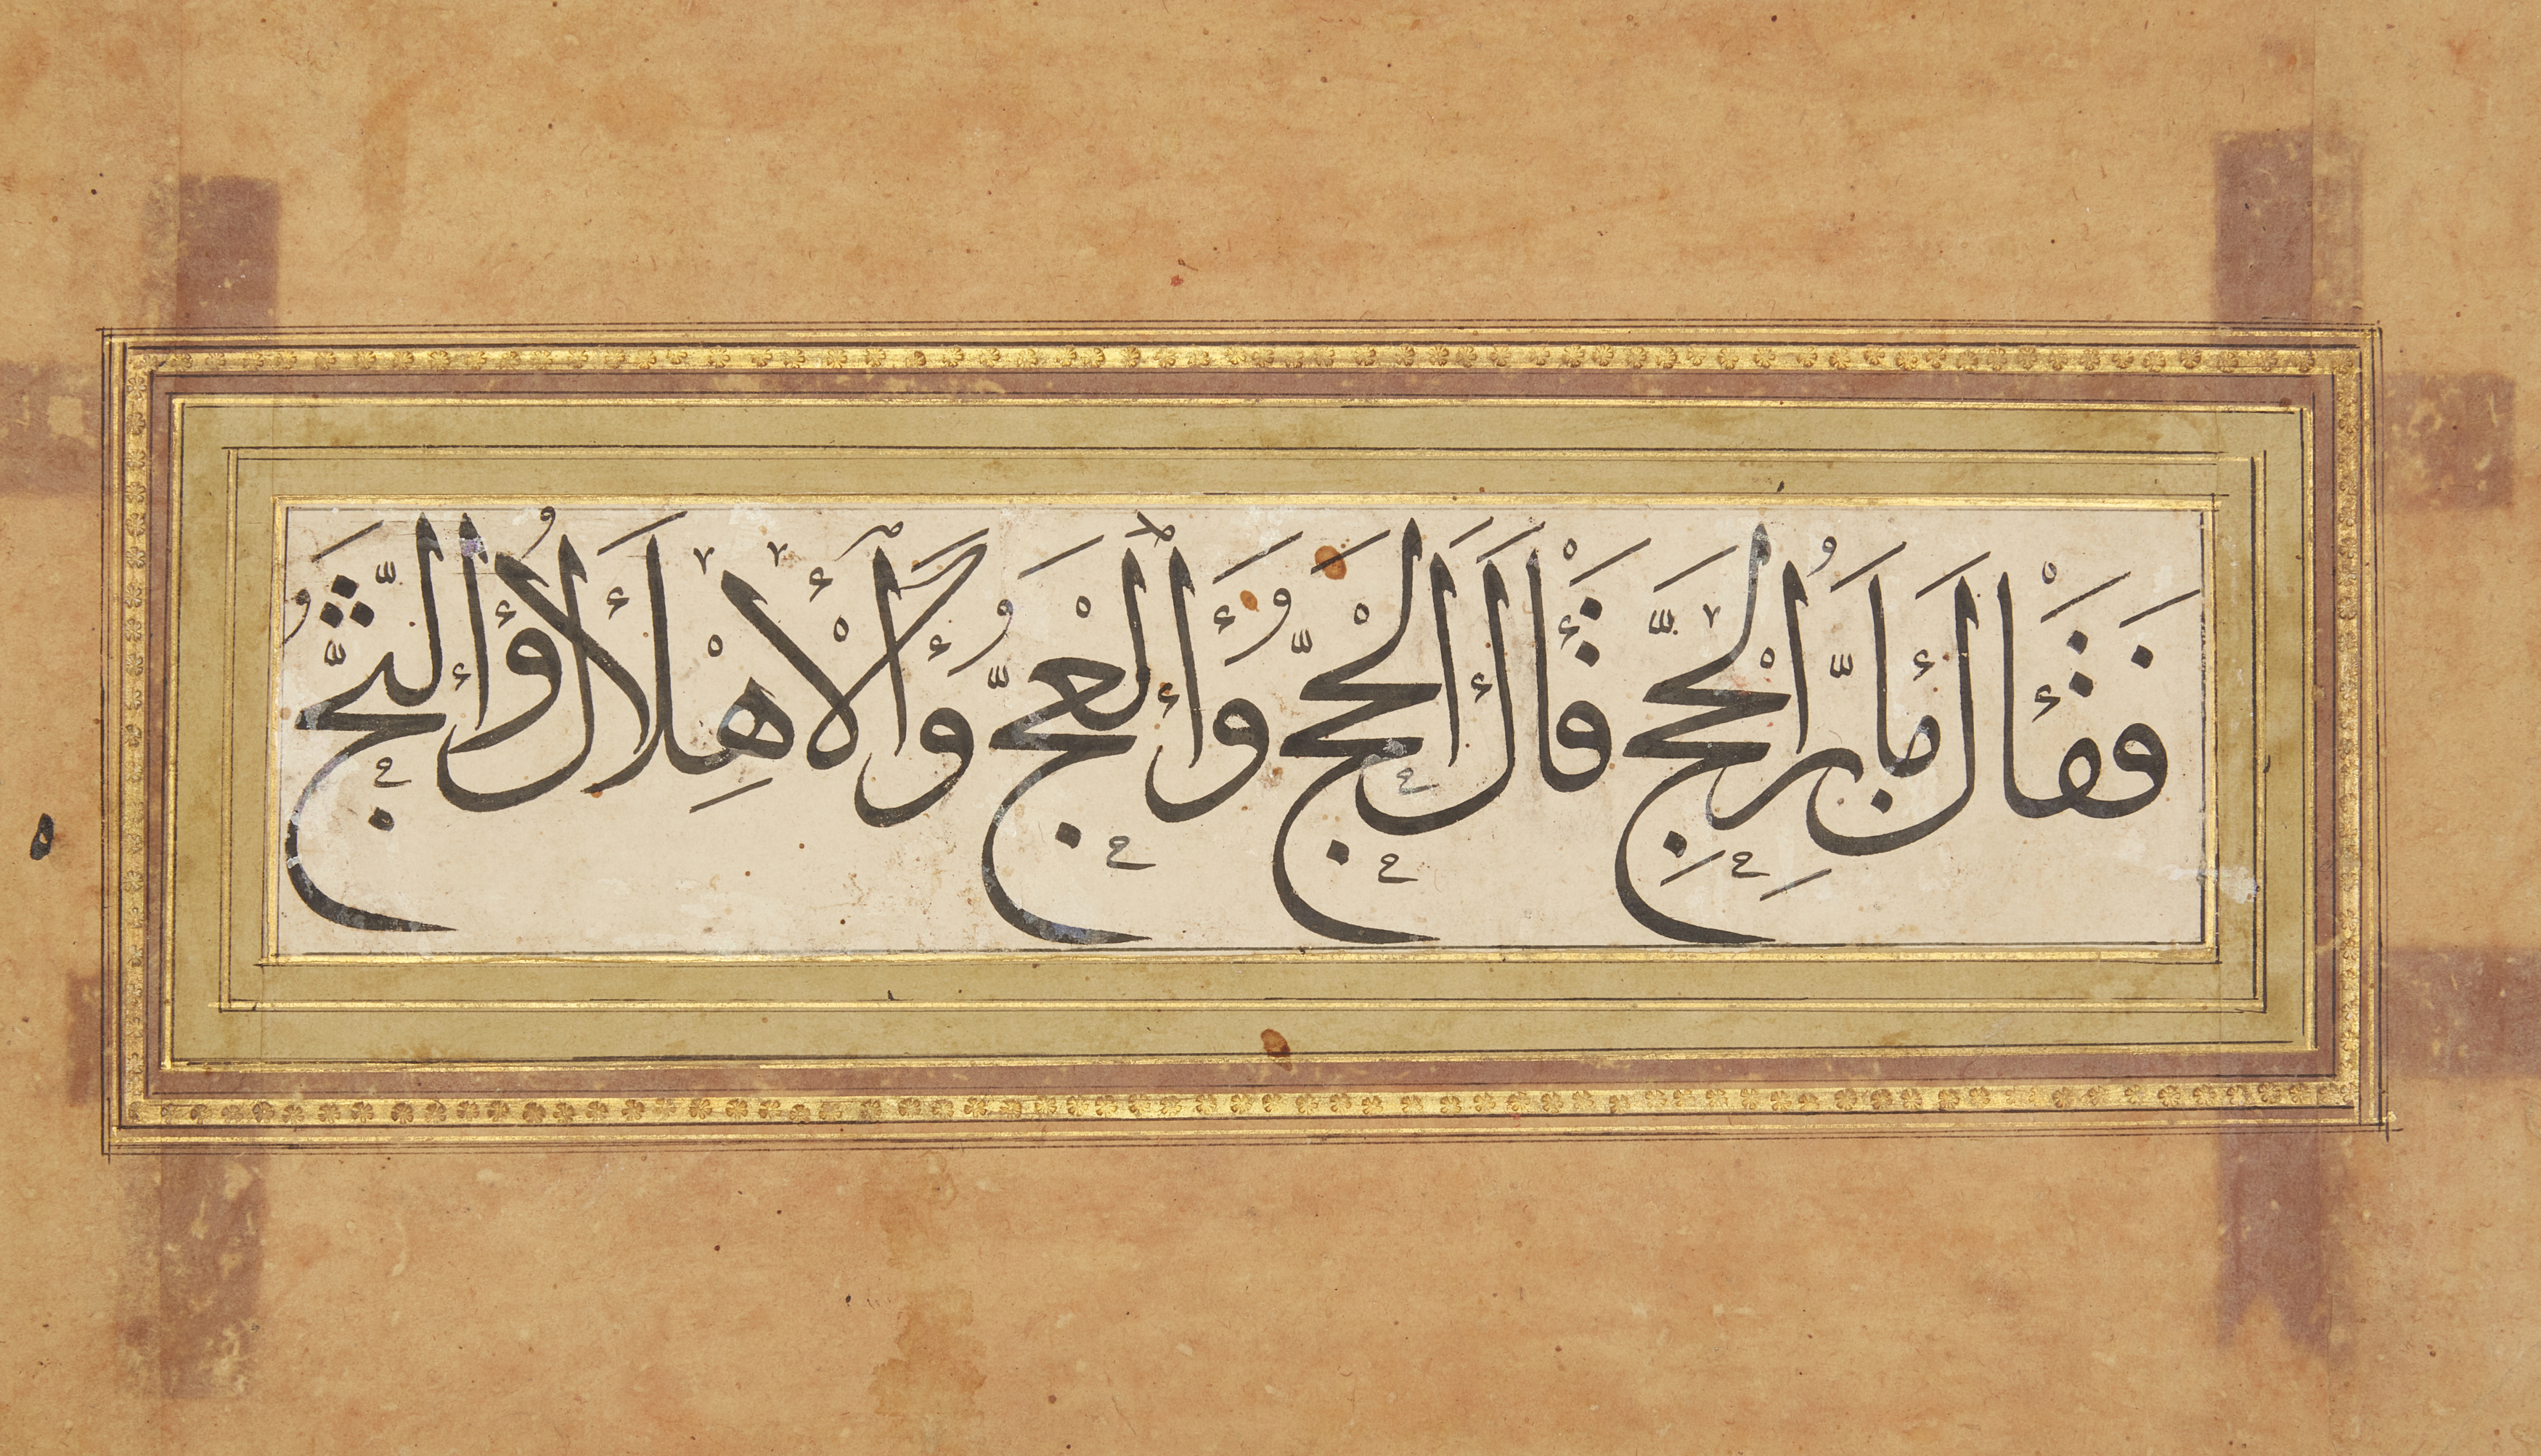 فَقَالَ مَا بِرُّ الْحَجِّ قَالَ الْحَجُّ وَالْعَجُّ وَالْاِهْلَالُ وَالثَّجُّ